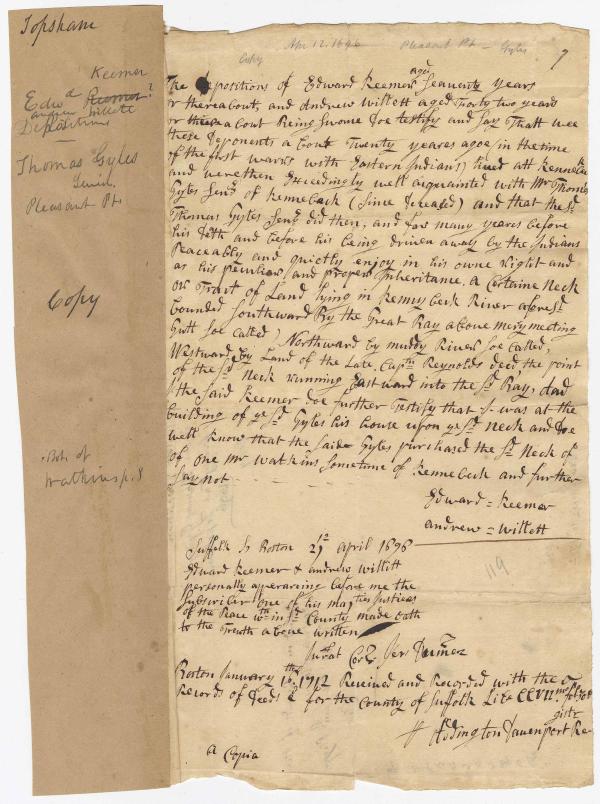 Topsham
Keemer
Edwd Keemer?
andrew willett
Depositions
Thomas Gyles
Pleasant Pt
Copy
Both of
Watkins p. 8
Copy Apr 12. 1696 Pleasant Pt - Gyles 7
The Depositions of Edward Keemer aged Seauenty years
or thereabout, and Andrew Willett aged Forty two years
or thereabout Being Sworne Doe testify and Say Thatt wee
these Deponents about Twenty yeares agoe, in the time
of the first warrs with Eastern Indians, liued att Kennebeck
and were then Exceedingly well acquainted with Mr Thomas
Gyles Senr. of Kennebeck (Since deceased) and that the sd
Thomas Gyles Senr. did then, and for many yeares before
his Deth and before his being driuen away by the Indians
Peaceably and quietly enjoy in his owne right and
as his peculiar and proper Inheritance, a Certaine Neck
or Tract of Land lying in Kennybeck River aforesd
bounded Southward By the Great Bay aboue mery meeting
Gutt soe called, Northward by muddy River soe called,
Westward by Land of the Late Captn Reynolds decd the point
of the sd Neck running Eastward into the sd Bay, And
I the said Keemer doe further testify that I was at the
building of ye sd Gyles his house upon ye sd Neck and doe
well know that the said Gyles purchased the sd Neck of
of one Mr Watkins Sometime of Kennebeck and further
Say not - - - - - - -
Edward = Keemer
andrew = willett
Suffolk Ss Boston 21st April 1696
Edward Keemer & andrew willitt
personally appearing before me the
Subscriber one of his majties Justices
of the Peace wth in sd County made oath
to the Treuth aboue written
Jurat Cor. Jer Dumer
Boston January 1 th 1712 Received and Recorded with the
Records of Deeds & for the County of Suffolk Libo XXVII
gistr
Addington Dauenport Re-
a Copia
119